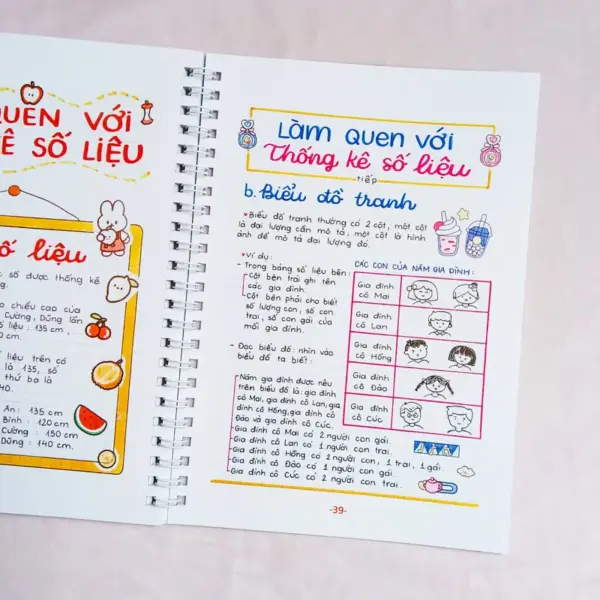 QUEN VỚI
KÊ SỐ LIỆU
số liệu
số được thống kê
chiều cao của
Cường, Dũng lần
số liệu : 135 cm,
liệu trên có
là 135, số
thứ ba là
An : 135 cm
Bình : 120 cm
Cường : 150 cm
Dũng : 140 cm.
Làm quen với
Thống kê số liệu
tiếp
b. Biểu đồ tranh
Biểu đồ tranh thường có 2 cột, một cột
là đại lượng cần mô tả, một cột là hình
ảnh để mô tả đại lượng đó.
Ví dụ :
- Trong bảng số liệu bên :
Cột bên trái ghi tên
các gia đình.
Cột bên phải cho biết
số lượng con, số con
trai, số con gái của
mỗi gia đình.
- Đọc biểu đồ : nhìn vào
biểu đồ ta biết :
Năm gia đình được nêu
trên biểu đồ là : gia đình
cô Mai, gia đình cô Lan, gia
đình cô Hồng, gia đình cô
Đào và gia đình cô Cúc.
Gia đình cô Mai có 2 người con gái.
Gia đình cô Lan có 1 người con trai.
Gia đình cô Hồng có 2 người con, 1 trai, 1 gái.
Gia đình cô Đào có 1 người con gái
Gia đình cô Cúc có 2 người con trai.
CÁC CON CỦA NĂM GIA ĐÌNH :
Gia đình
cô Mai
Gia đình
cô Lan
Gia đình
cô Hồng
Gia đình
cô Đào
Gia đình
cô Cúc
-39-